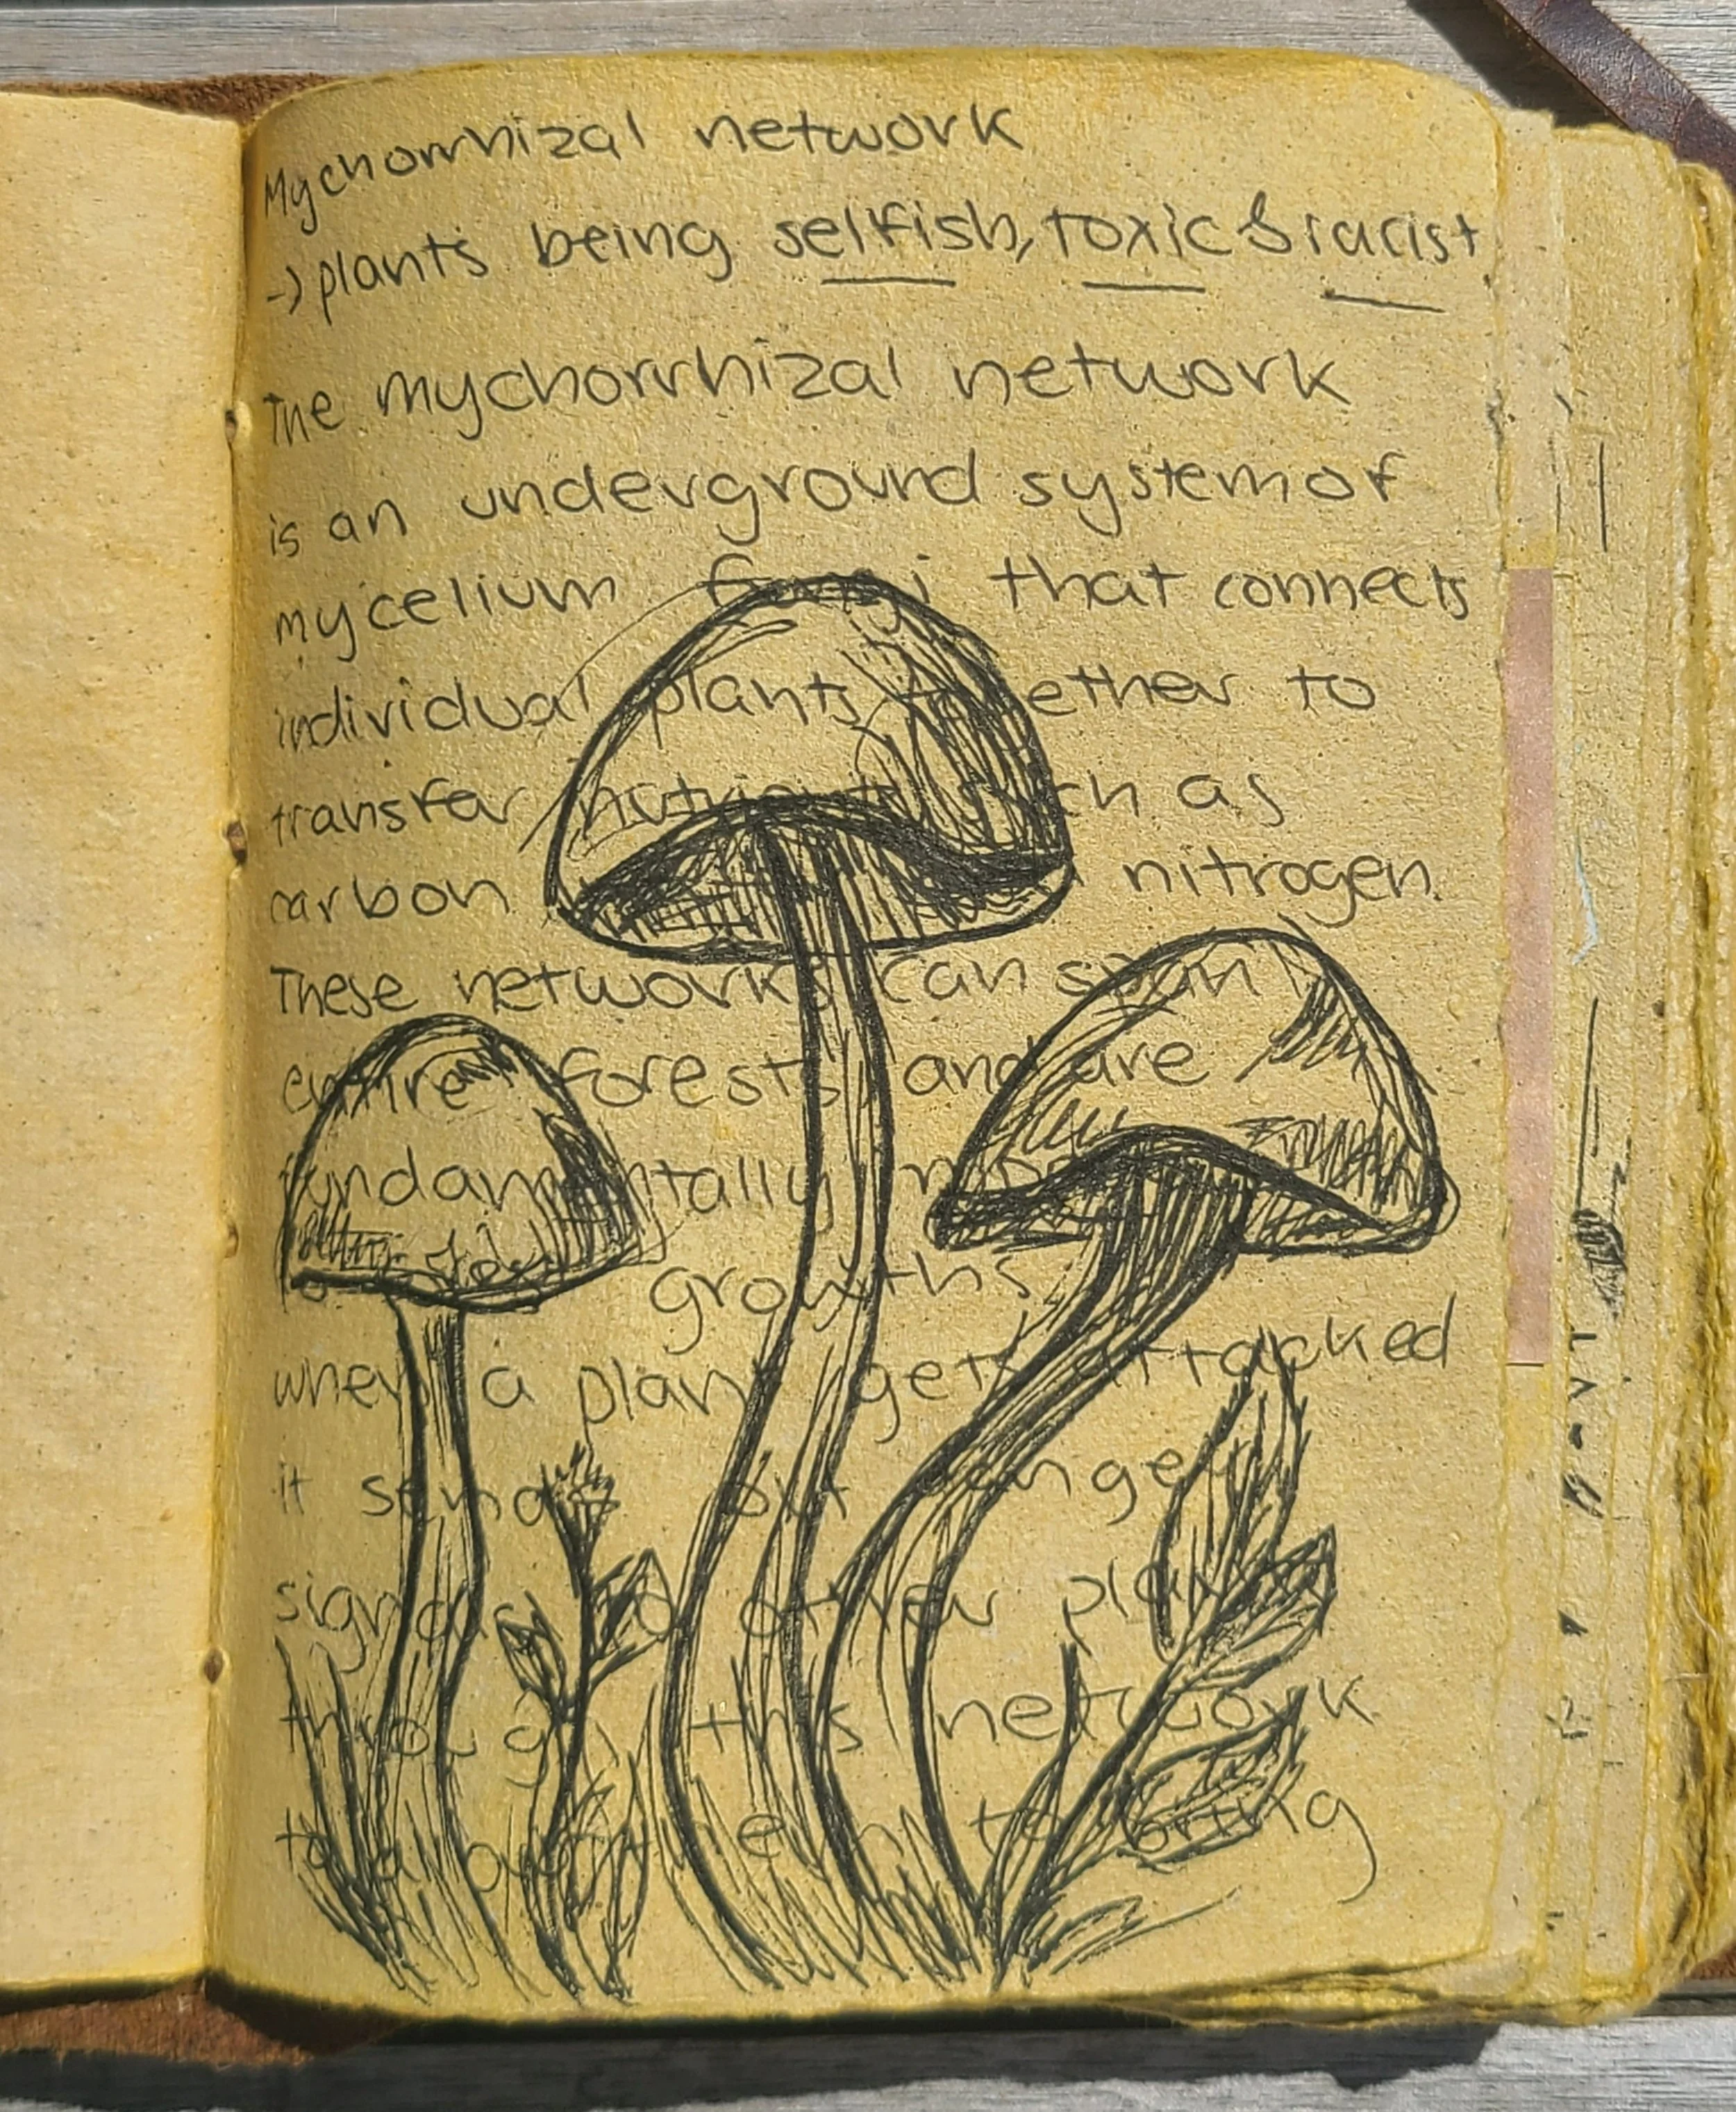 Mychorrhizal network
-> plants being selfish, toxic & racist
The mychorrhizal network
is an underground system of
mycelium fungi that connects
individual plants together to
transfer nutrients such as
carbon nitrogen.
These networks can span
entire forests and are
fundamentally
growths.
when a plant gets attacked
it sends out danger
signals to other plants
through this network
to bring